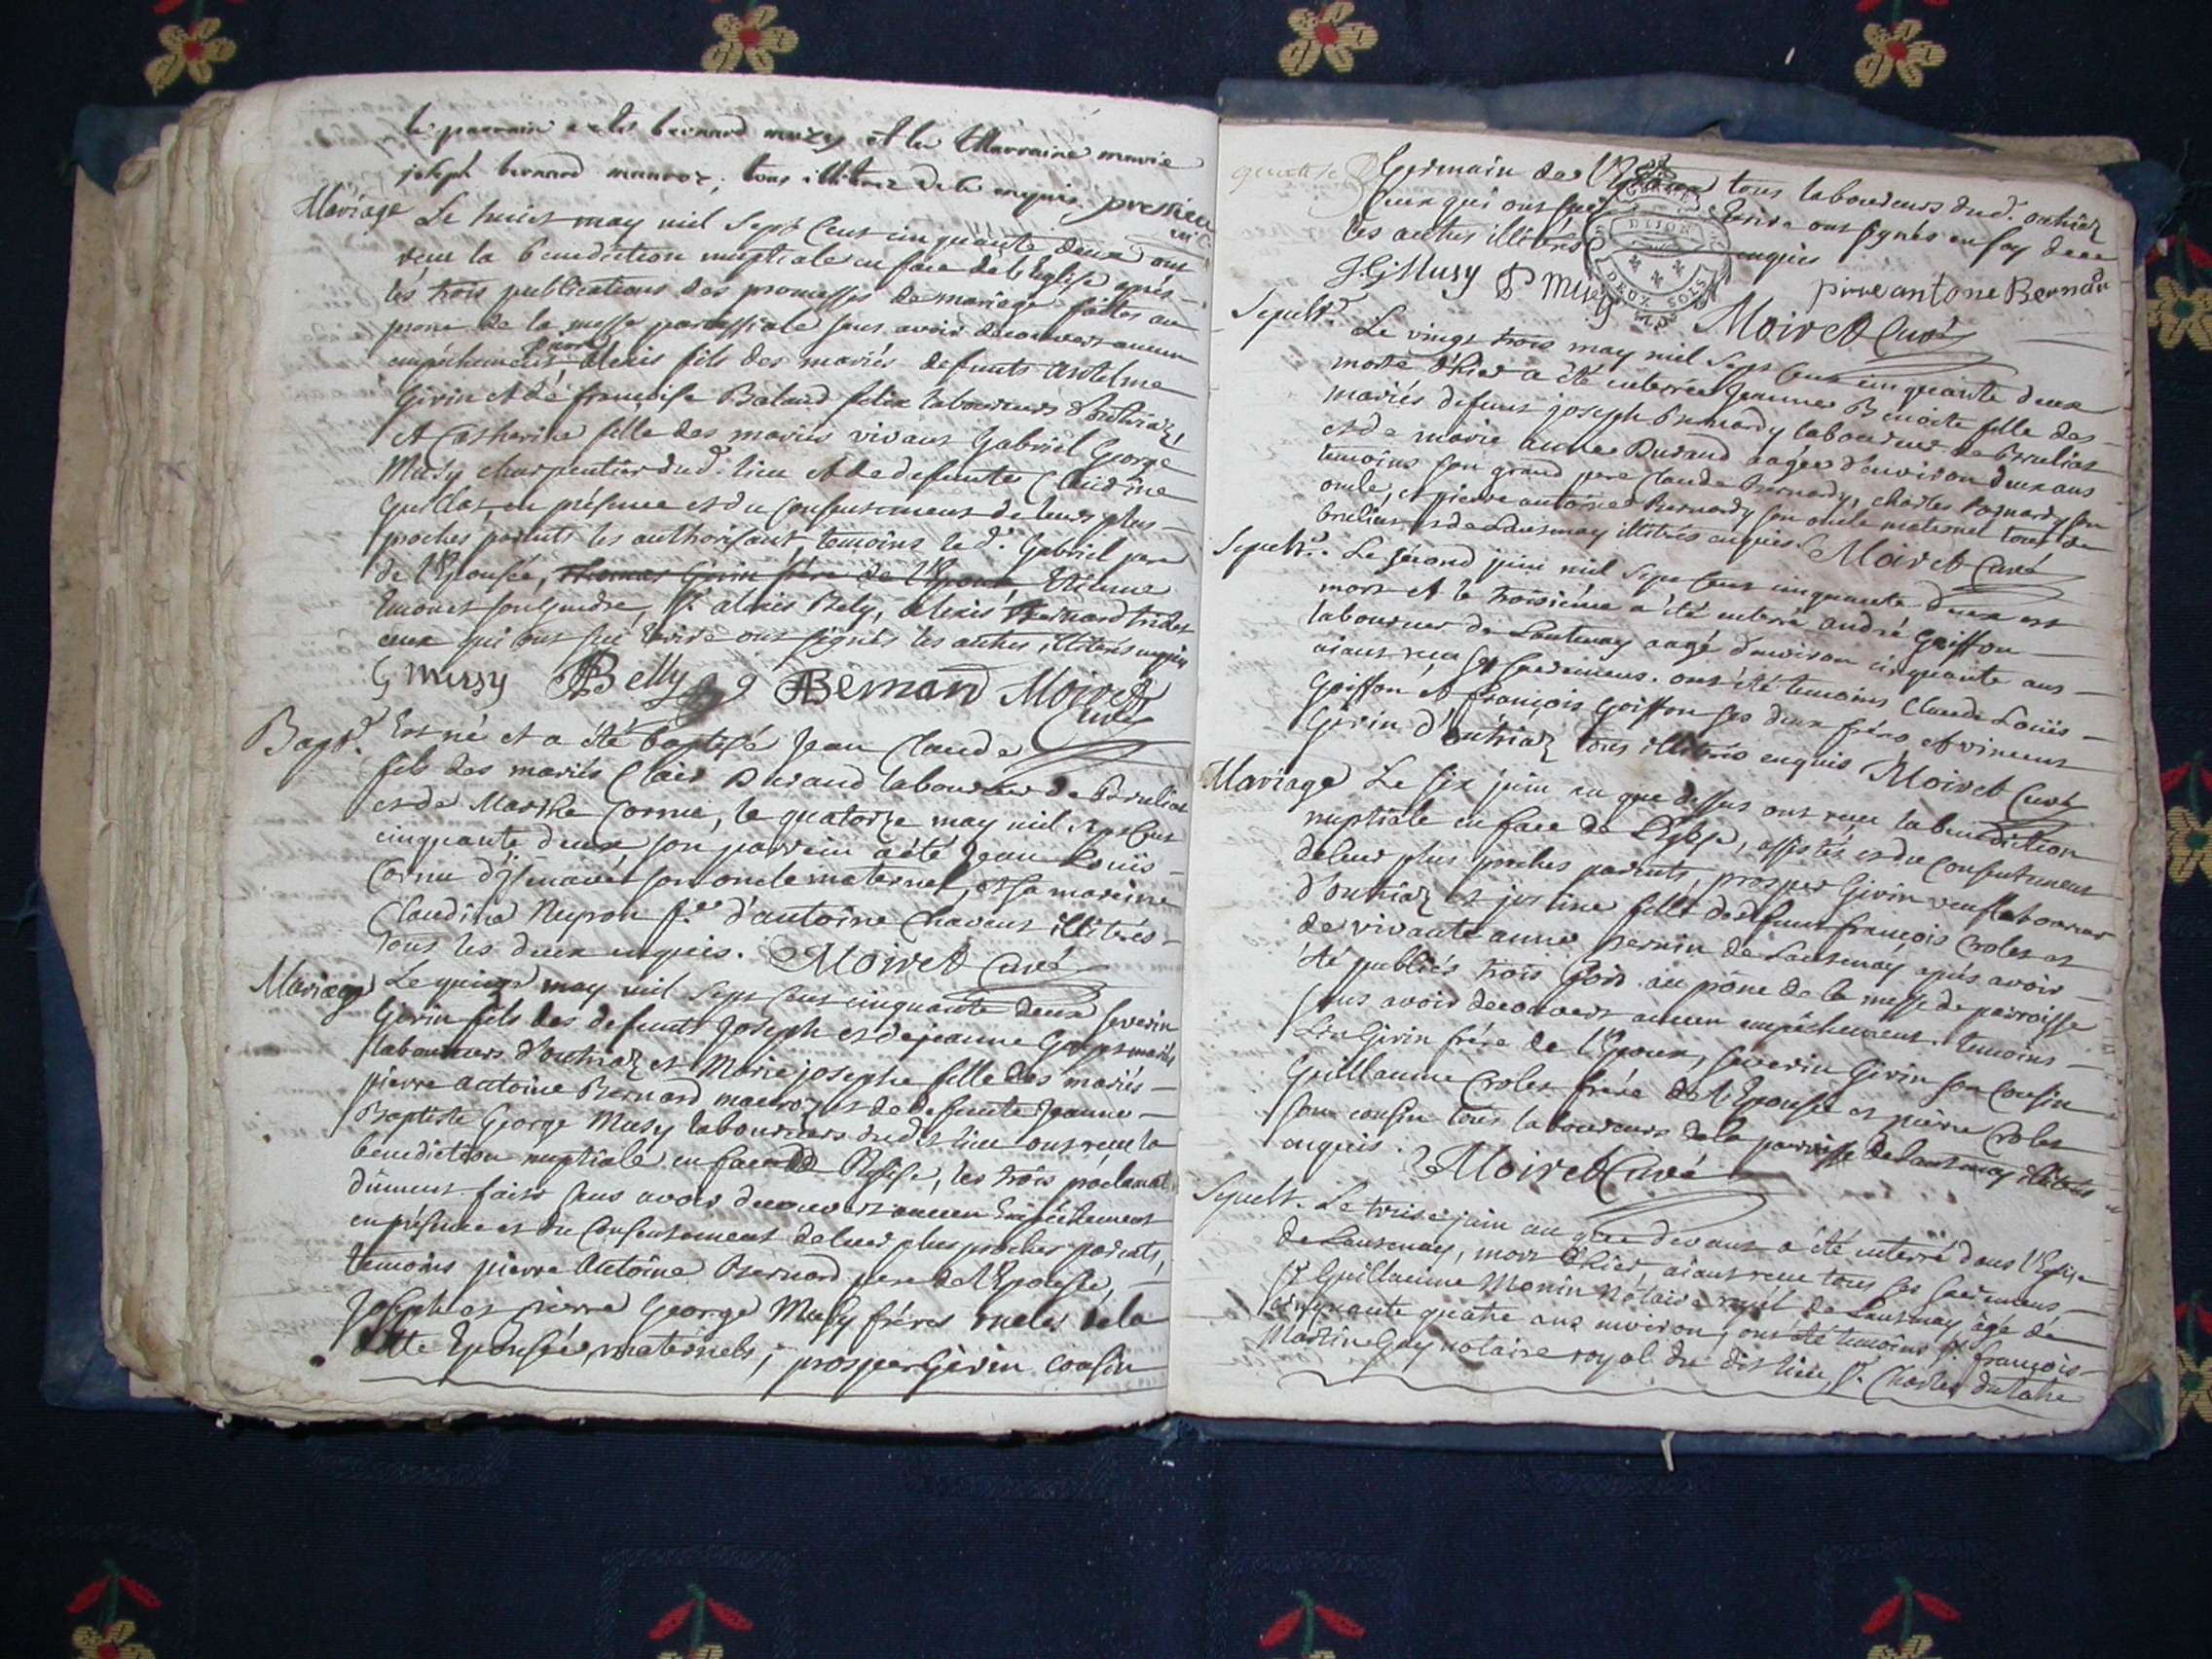 le parrain alexis bernard muzy et la Marraine marie
joseph bernard mauroz, tous illiterez de ce enquis
Mariage Le huict may mil Sept Cent cinquante deux ont
receu la benediction nuptiale en face de l'Eglise après
les trois publications des promesses de mariage faittes au
prone de la messe paroissiale sans avoir decouvert aucun
empêchement, Alexis fils des mariés defunts Anthelme
Girin et de françoise Baland laboureurs d'outriaz,
et Catherine fille des mariés vivant Gabriel George
Musy charpentier dud. lieu et de defunte Claudine
Guillot, en présence et du consentement de leurs plus
proches parents les authorisant, temoins led. Gabriel pere
de l'Epousée, Thomas Girin frère de l'Epoux, Etienne
son gendre, Sr. alexis Bely, alexis Bernard
ceux qui ont sçu Ecrire ont signés les autres illiterés enquis
G Musy ABelly ABernard Moiret
Curé
Bapt. Est né et a été baptisé Jean Claude
fils des mariés Clair Durand laboureur de Brulias
et de Marthe Cornu, le quatorze may mil Sept Cent
cinquante deux son parrein a été Jean Loüis
Cornu d'Isenave son oncle maternel, et sa mareine
Claudine Neyron f.e d'antoine Chavent illiterés
tous les deux enquis. Moiret Curé
Mariage Le quinze may mil Sept Cent cinquante deux Severin
Girin fils des defunts Joseph et de jeanne mariés
laboureurs d'outriaz et Marie josephe fille des mariés
pierre antoine Bernard mauroz et de defunte Jeanne
Baptiste George Musy laboureurs dudit lieu ont receu la
benediction nuptiale en face de l'Eglise, les trois proclamat.
düment faites sans avoir decouvert aucun Empêchement
en présence et du Consentement de leurs plus proches parents,
temoins pierre Antoine Bernard pere de l'Epousée,
Joseph et pierre George Musy fréres oncles de la
ditte Epousée, maternels; prosper Girin cousin
Germain de l'Epoux tous laboureurs dud. outriaz
Ceux qui ont sçu Ecrire ont signés en foy de ce
les autres illiterés enquis
DIJON
DEUX SOLS
J.G Musy P Musy pierre antone Bernard
Moiret Curé
Sepult.
Le vingt trois may mil Sept Cent cinquante deux
morte d'hier a été enterrée Jeanne Benoite fille des
mariés defunt joseph Bernardy laboureur de Brulias
et de marie anne Durand aagée d'environ deux ans
temoins son grand pere Claude Bernardy, charles Bernardy son
oncle, et pierre antoine Bernardy son oncle maternel tous de
brulias et de Lantenay illiterés enquis. Moiret Curé
Sepult. Le second juin mil Sept Cent cinquante deux est
mort et le troisiéme a été enterré andré Goiffon
laboureur de Lantenay aagé d'environ cinquante ans
aiant receu ses sacremens. ont été temoins Claude Loüis
Goiffon et françois Goiffon ses deux fréres, et vincent
Girin d'outriaz tous illiterés enquis Moiret Curé
Mariage Le six juin an que dessus ont receu la benediction
nuptiale en face de l'Eglise, assistés et du consentement
de leurs plus proches parents, prosper Girin veuf laboureur
d'outriaz et justine fille de defunt françois Crolet et
de vivante anne pernin de Lantenay, après avoir
été publiés trois fois au prône de la messe de parroisse
sans avoir decouvert aucun empêchement. temoins
Girin frére de l'Epoux, severin Girin son cousin
Guillaume Crolet frére de l'Epouse et pierre Crolet
son cousin tous laboureurs de la parroisse de Lantenay illiterés
enquis. Moiret Curé
Sepult. Le treize juin an que devant a été enterré dans l'Eglise
de Lantenay, mort d'hier, aiant receu tous ses sacremens
Sr Guillaume Monin Notaire royal de Lantenay âgé de
cinquante quatre ans environ, ont été temoins Sr. françois
Martin Guy notaire royal du dit lieu, Sr. Charles